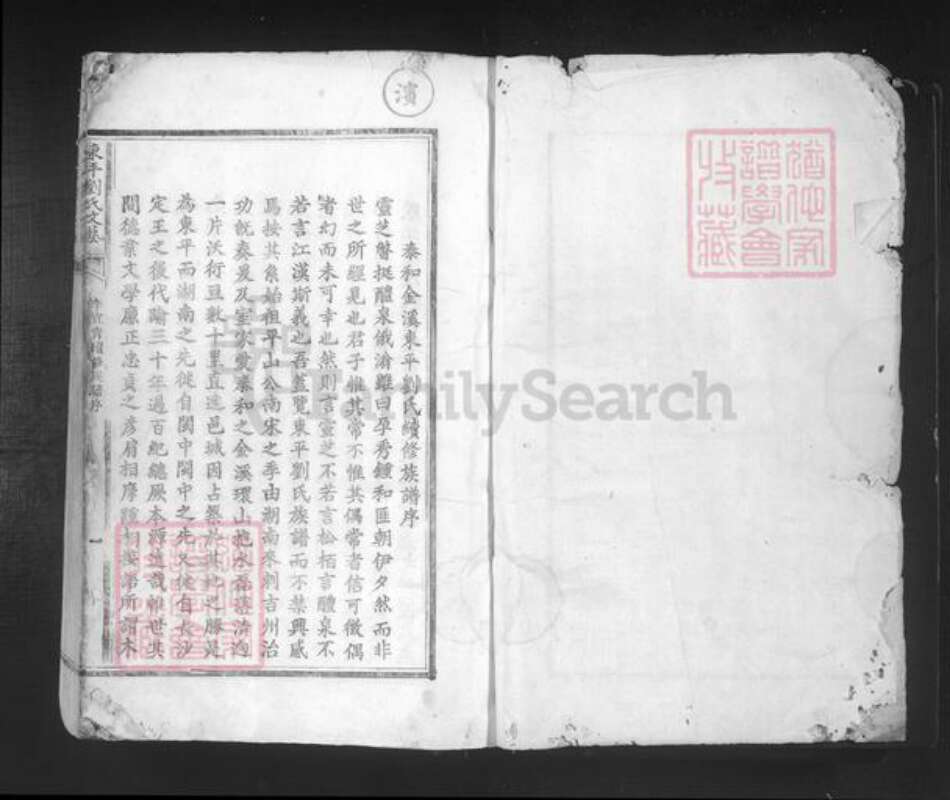 濱
泰和金溪東平劉氏續修族譜序
靈芝瞥挺醴泉俄淪雖曰孕秀鍾和匪朝伊夕然而非
世之所經見也君子惟其常不惟其偶常者信可徵偶
者幻而未可幸也然則言靈芝不若言松栢言醴泉不
若言江漢斯義也吾蓋覽東平劉氏族譜而不禁興感
焉按其系始祖平山公南宋之季由湖南來刺吉州治
功既奏爰及室家愛泰和之金溪環山抱水
一片沃衍亘數十里直達邑城因占籍於其地
為東平而湖南之先徙自閩中閩中之先又徙自長沙
定王之後代踰三十年過百紀總厥本源遠哉惟世其
間德業文學廉正忠貞之彥肩相摩所謂木
東平劉氏族譜
序
一
猶他家
譜學會
收藏
FamilySearch